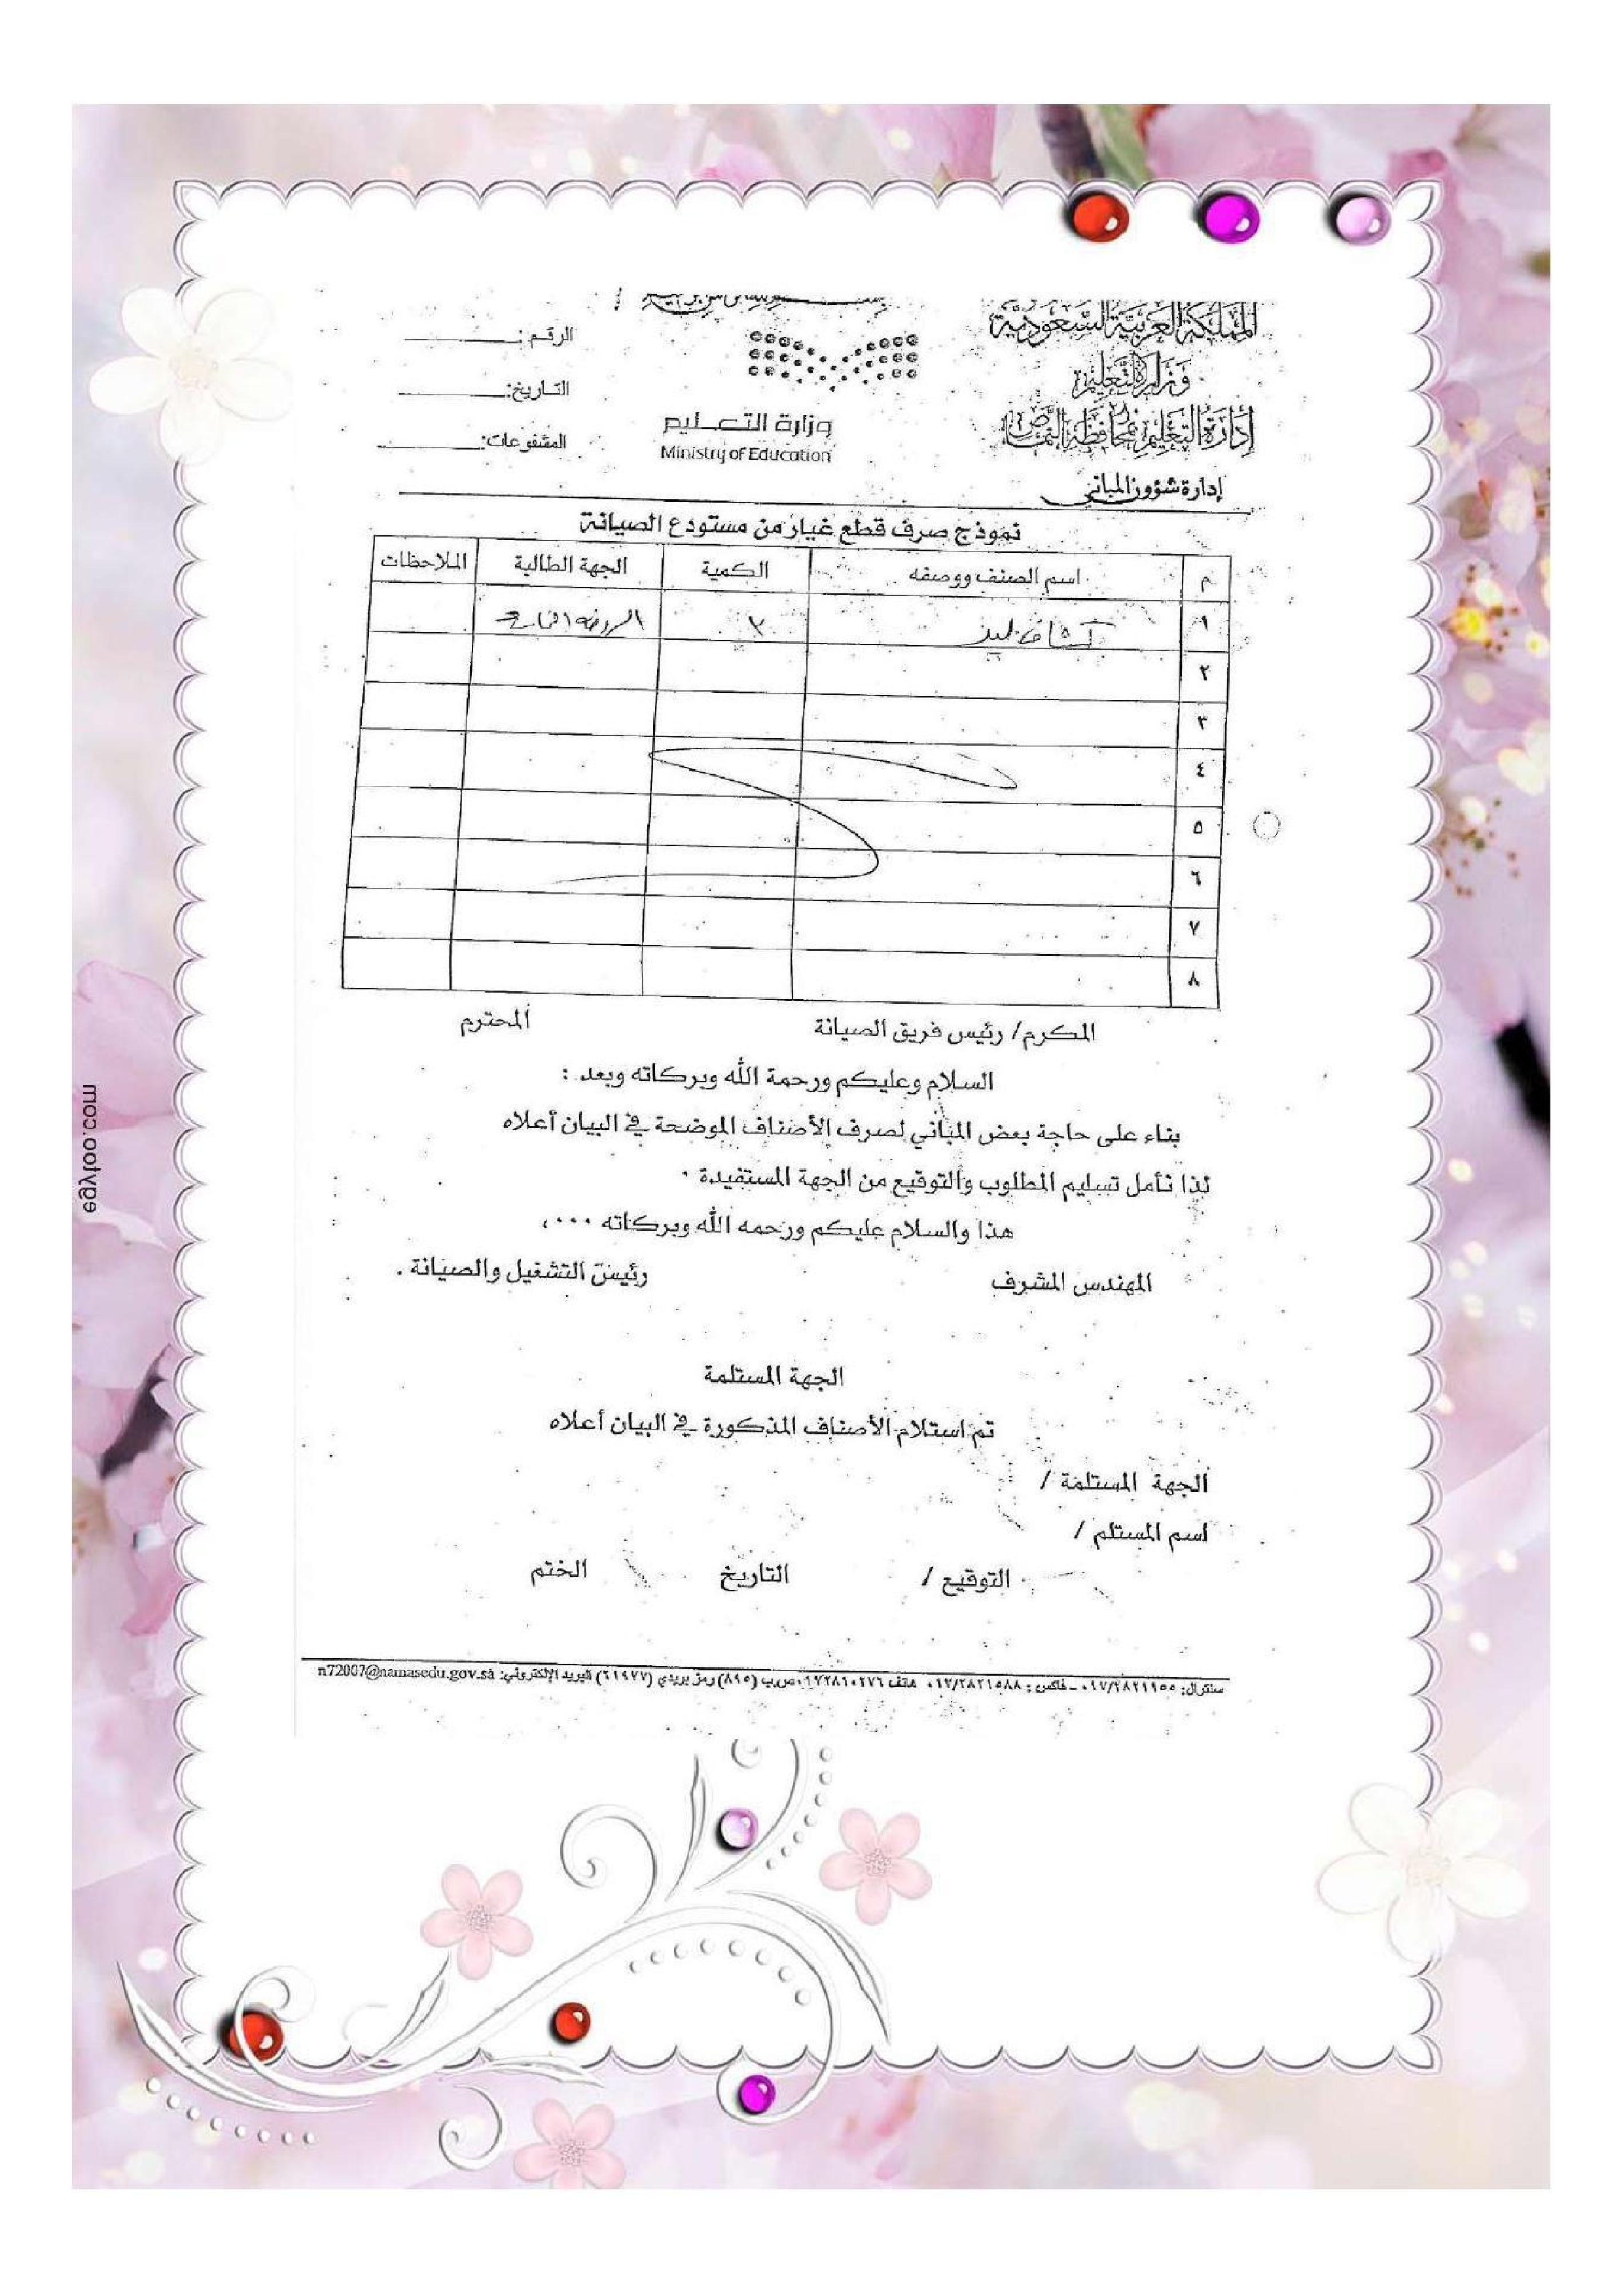 المملكة العربية السعودية
وزارة التعليم
إدارة التعليم بمحافظة النماص
إدارة شؤون المباني
وزارة التعـــليم
Ministry of Education
الرقم:
التاريخ:
المشفوعات:
نموذج صرف قطع غيار من مستودع الصيانة
م اسم الصنف ووصفه الكمية الجهة الطالبة الملاحظات
١ كشاف ليد
٢
٣
٤
٥
٦
٧
٨
المكرم/ رئيس فريق الصيانة المحترم
السلام وعليكم ورحمة الله وبركاته وبعد :
بناء على حاجة بعض المباني لصرف الأصناف الموضحة في البيان أعلاه
لذا نأمل تسليم المطلوب والتوقيع من الجهة المستفيدة .
هذا والسلام عليكم ورحمه الله وبركاته ...،
المهندس المشرف رئيس التشغيل والصيانة .
الجهة المستلمة
تم استلام الأصناف المذكورة في البيان أعلاه
الجهة المستلمة /
اسم المستلم /
التوقيع / التاريخ الختم
سنترال: ٠١٧/٢٨٢١١٥٥ - فاكس : ٠١٧/٢٨٢١٥٨٨ هاتف ٠١٧٢٨١٠٢٧٦ ص.ب (٨٩٥) رمز بريدي (٦١٩٧٧) البريد الإلكتروني: n72007@namasedu.gov.sa
egyfoto.com